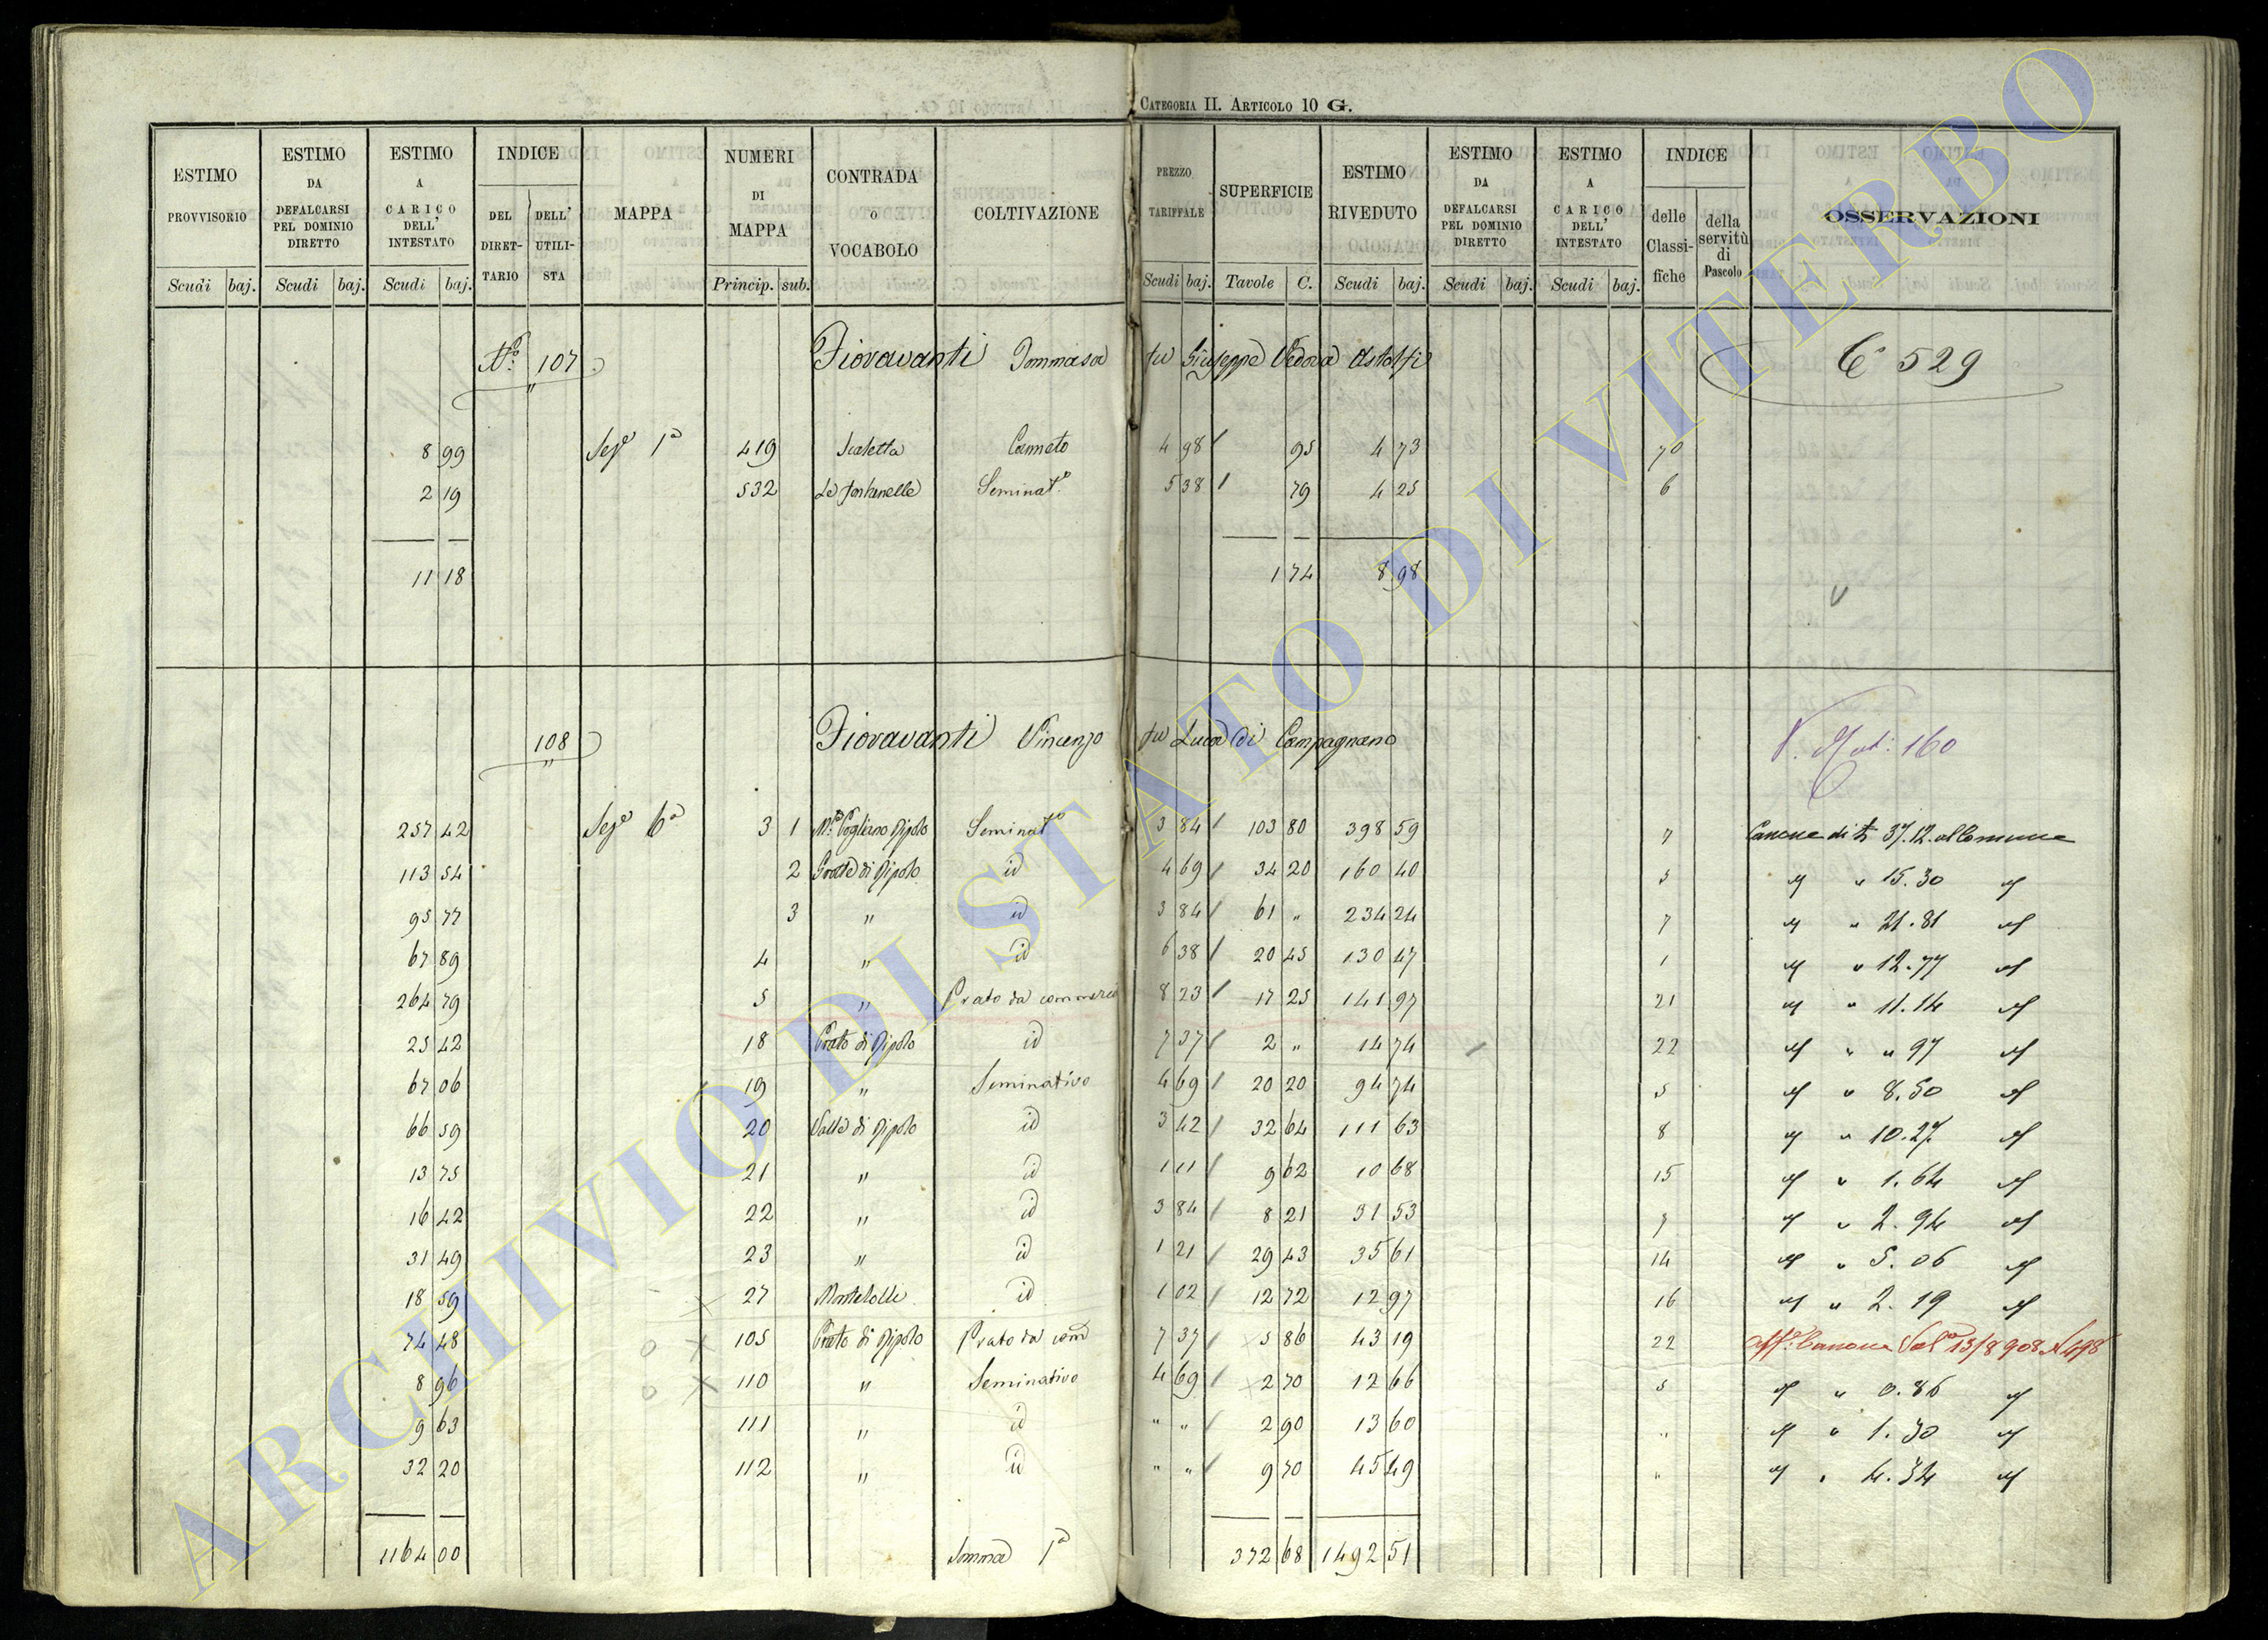 CATEGORIA II. ARTICOLO 10 G.
ESTIMO PROVVISORIO Scudi baj.
ESTIMO DA DEFALCARSI PEL DOMINIO DIRETTO Scudi baj.
ESTIMO A CARICO DELL' INTESTATO Scudi baj.
INDICE DEL DIRETTARIO DELL' UTILISTA
MAPPA
NUMERI DI MAPPA Princip. sub.
CONTRADA o VOCABOLO
COLTIVAZIONE
PREZZO TARIFFALE Scudi baj.
SUPERFICIE Tavole C.
ESTIMO RIVEDUTO Scudi baj.
ESTIMO DA DEFALCARSI PEL DOMINIO DIRETTO Scudi baj.
ESTIMO A CARICO DELL' INTESTATO Scudi baj.
INDICE delle Classifiche della servitù di Pascolo
OSSERVAZIONI
N.º 107 Fioravanti Tommasa fu Giuseppe Vedova Astolfi 529
8 99 Sez.e 1a 419 Scaletta Canneto 4 98 95 4 73 70
2 19 532 Le fontanelle Seminat.o 5 38 79 4 25 6
11 18 1 74 8 98
108 Fioravanti Vincenzo fu Luca di Campagnano 160
257 42 Sez.e 6a 3 1 Seminat.o 3 84 103 80 398 59 7 Canone di 37.12. al Comune
113 54 2 id 4 69 34 20 160 40 5 " 15.30 "
95 77 3 " id 3 84 61 " 234 24 7 " 21.81 "
67 89 4 " id 6 38 20 45 130 47 1 " 12.77 "
264 79 5 " Prato da commercio 8 23 17 25 141 97 21 " 11.14 "
25 42 18 Prato di Pipolo id 7 37 2 " 14 74 22 " " 97 "
67 06 19 " Seminativo 4 69 20 20 94 74 5 " 8.50 "
66 59 20 Valle di Pipolo id 3 42 32 64 111 63 8 " 10.27 "
13 75 21 " id 1 11 9 62 10 68 15 " 1.64 "
16 42 22 " id 3 84 8 21 31 53 7 " 2.94 "
31 49 23 " id 1 21 29 43 35 61 14 " 5.06 "
18 59 27 id 1 02 12 72 12 97 16 " 2.19 "
74 48 105 Prato di Pipolo Prato da com 7 37 5 86 43 19 22 Aff.e Canone 13/8 908 N 498
8 96 110 " Seminativo 4 69 2 70 12 66 5 " 0.86 "
9 63 111 " id " " 2 90 13 60 " " 1.30 "
32 20 112 " id " " 9 70 45 49 " " 4.34 "
1164 00 Somma 1a 372 68 1492 51
ARCHIVIO DI STATO DI VITERBO